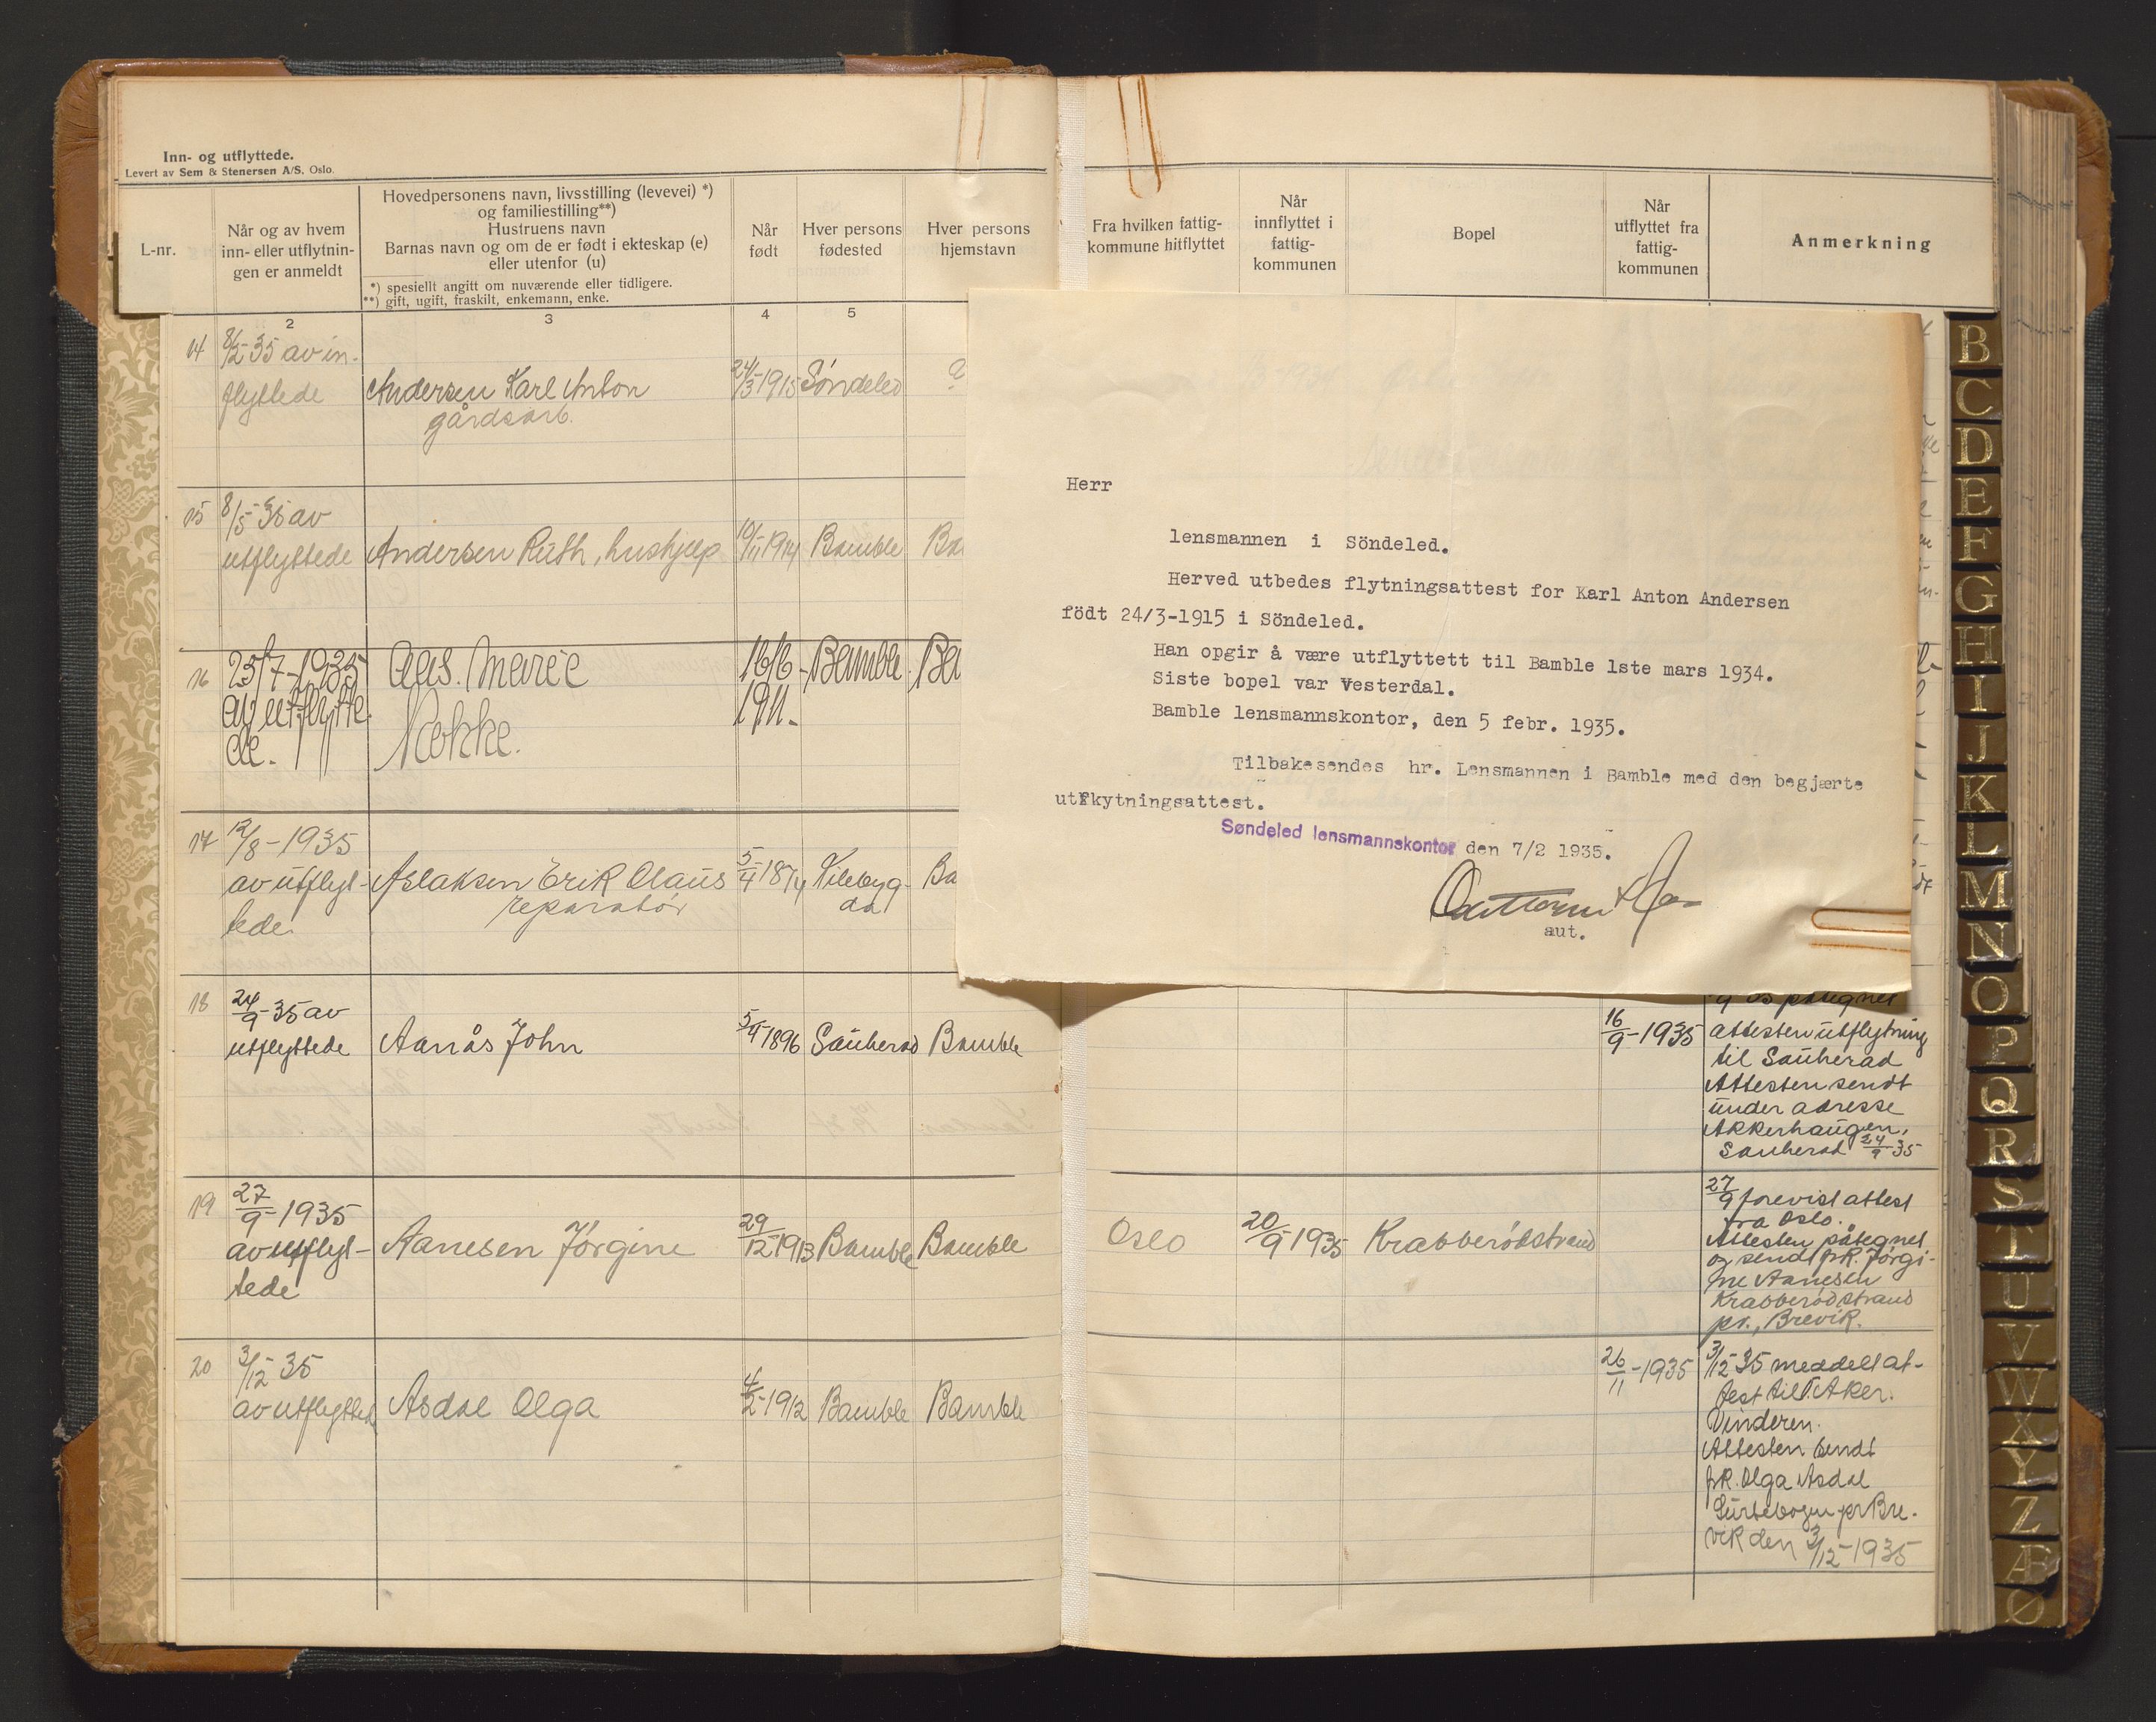 Inn- og utflyttede.
Levert av Sem & Stenersen A/S. Oslo.
L-nr.
Når og av hvem
inn- eller utflytnin-
gen er anmeldt
Hovedpersonens navn, livsstilling (levevei) *)
og familiestilling**)
Hustruens navn
Barnas navn og om de er født i ekteskap (e)
eller utenfor (u)
*) spesiellt angitt om nuværende eller tidligere.
**) gift, ugift, fraskilt, enkemann, enke.
Når
født
Hver persons
fødested
Hver persons
hjemstavn
Fra hvilken fattig-
kommune hitflyttet
Når
innflyttet i
fattig-
kommunen
Bopel
Når
utflyttet fra
fattig-
kommunen
Anmerkning
2 3 4 5
14 8/2-35 av in-
flyttede Andersen Karl Anton 24/3-1915 Söndeled ?
gårdsarb.
15 8/5-35 av
utflyttede Andersen Ruth, hushjelp 10/11 1914 Bamble Ba
16 25/7-1935 Aas. Marie 16/6- Bamble. Ba
av utflytte
de. Kokke. 1911.
17 12/8-1935
av utflyt- Aslaksen Erik Olaus 5/4 1874 Kilebyg- Ba
tede. reparatör da
18 24/9-35 av
utflyttede Aanås John 5/4 1896 Sauherad Bamble
19 27/9-1935
av utflyt- Aanesen Jörgine 29/12-1913 Bamble Bamble
tede
20 3/12 35
av utflytted Asdal Olga 4/2-1912 Bamble Bamble
Herr
lensmannen i Söndeled.
Herved utbedes flytningsattest for Karl Anton Andersen
födt 24/3-1915 i Söndeled.
Han opgir å være utflyttett til Bamble 1ste mars 1934.
Siste bopel var Vesterdal.
Bamble lensmannskontor, den 5 febr. 1935.
Tilbakesendes hr. Lensmannen i Bamble med den begjærte
utfkytningsattest.
Søndeled lensmannskontor den 7/2 1935.
aut.
påtegnet
16/9-1935 attesten utflytning
til Sauherad
Attesten sendt
under adresse
Akkerhaugen,
Sauherad 24/9 35
27/9 forevist attest
fra Oslo.
Oslo 20/9-1935 Krabberödstrand
Attesten påtegnet
og sendt frk. Jörgi-
ne Aanesen
Krabberödstrand
pr., Brevik.
26/11-1935 3/12-35 meddelt at-
test til V. Aker.
Vinderen.
Attesten sendt
frk. Olga Asdal
Surtebogen pr Bre-
vik den 3/12-1935
B
C
D
E
F
G
H
I
J
K
L
M
N
O
P
Q
R
S
T
U
V
W
X
Y
Z
Æ
Ø